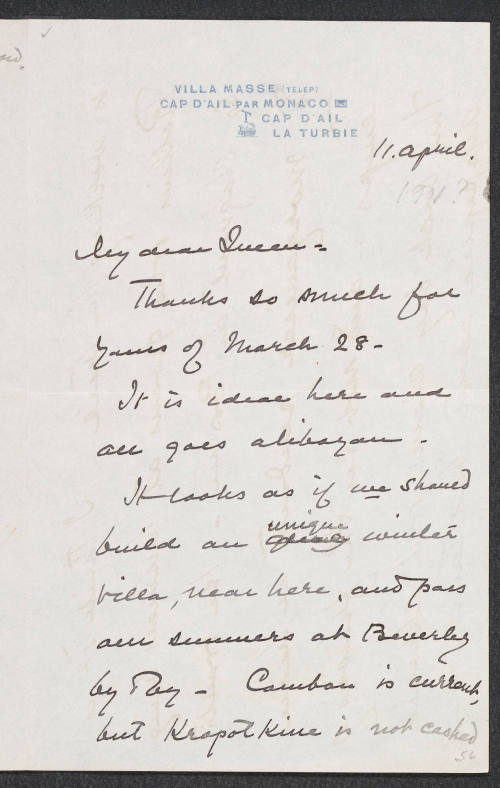 VILLA MASSE (TELEP)
CAP D'AIL PAR MONACO
CAP D'AIL
LA TURBIE
11. April.
191?
My dear Queen -
Thanks so much for
yours of March 28 -
It is ideal here and
all goes alibazan -
It looks as if we should
build an unique winter
villa, near here, and pass
our summers at Beverley
by - Cambon is current,
but Kropotkine is not cashed